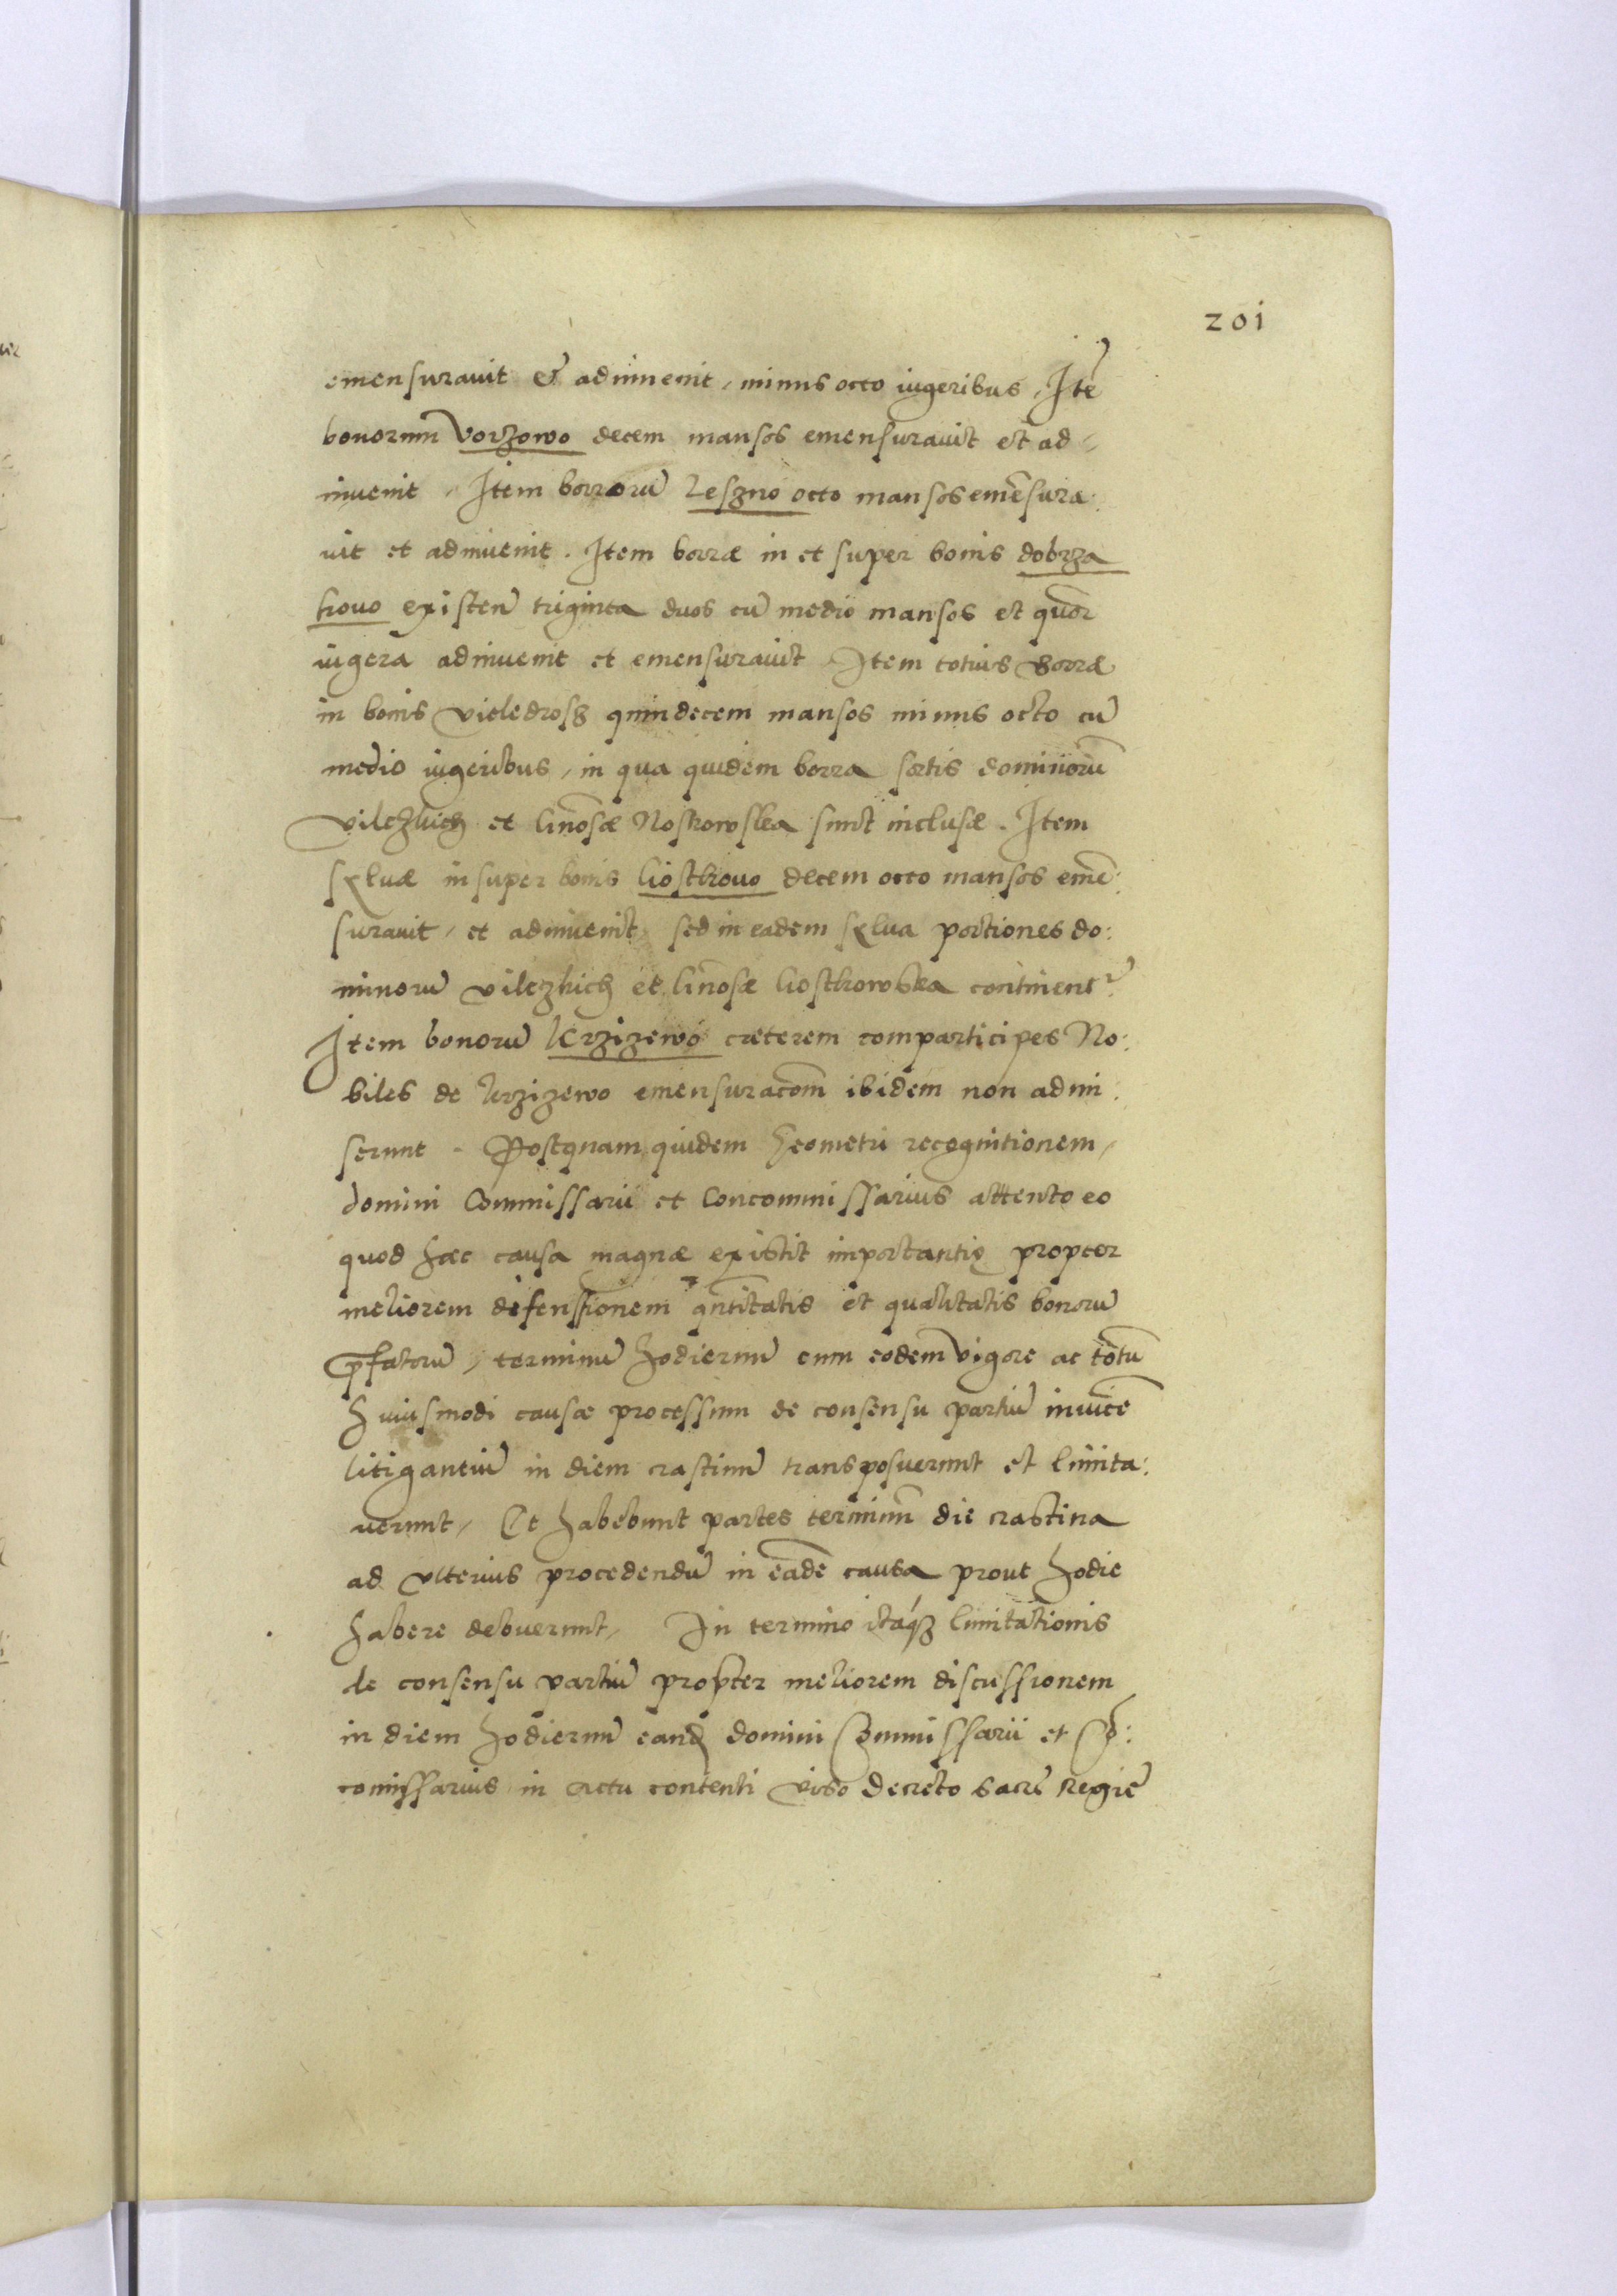 201
emensurauit & adinuenit, minus octo iugeribus, Itē
bonorum Vorzowo decem mansos emensurauit et ad-
inuenit, Item borrorū Leszno octo mansos emēsura:
uit et adinuenit. Item borræ in et super bonis dobrza
kowo existeñ triginta duos cū medio mansos et quōr
iugera adinuenit et emensurauit Item totius borræ
in bonis Vieledrosz quindecem mansos minus octo cū
medio iugeribus, in qua quidem borra sortis dominorū
Vilczkich et Gñosæ Noskowska sunt inclusæ. Item
syluæ in super bonis Gostkowo decem octo mansos emē:
surauit, et adinuenit, sed in eadem sylua portiones do:
minorū Vilczkich et Gñosæ Gostkowska continentr
Item bonorū Krzizewo cæterem comparticipes No:
biles de krzizewo emensuracōm ibidem non admi:
serunt. Postquam quidem Geometri recognitionem,
domini Commissarii et Concommissarius attento eo
quod hæc causa magnæ existit importantię propter
meliorem defensionem qñtitatis et qualitatis bonorū
pfatorū, terminū hodiernū cum eodem vigore ac totū
huiusmodi causæ processum de consensu partiū inuicē
litigantiū in diem crastinū transposuerunt et limita:
uerunt, Et habebunt partes terminū die crastina
ad vlterius procedendū in eadē causa prout hodie
habere debuerunt, In termino itaq₃ limitationis
de consensu partiū propter meliorem discussionem
in diem hodiernū eand domini Commissarii et Cō:
comissarius in actu contenti viso decreto sacrē Regiē